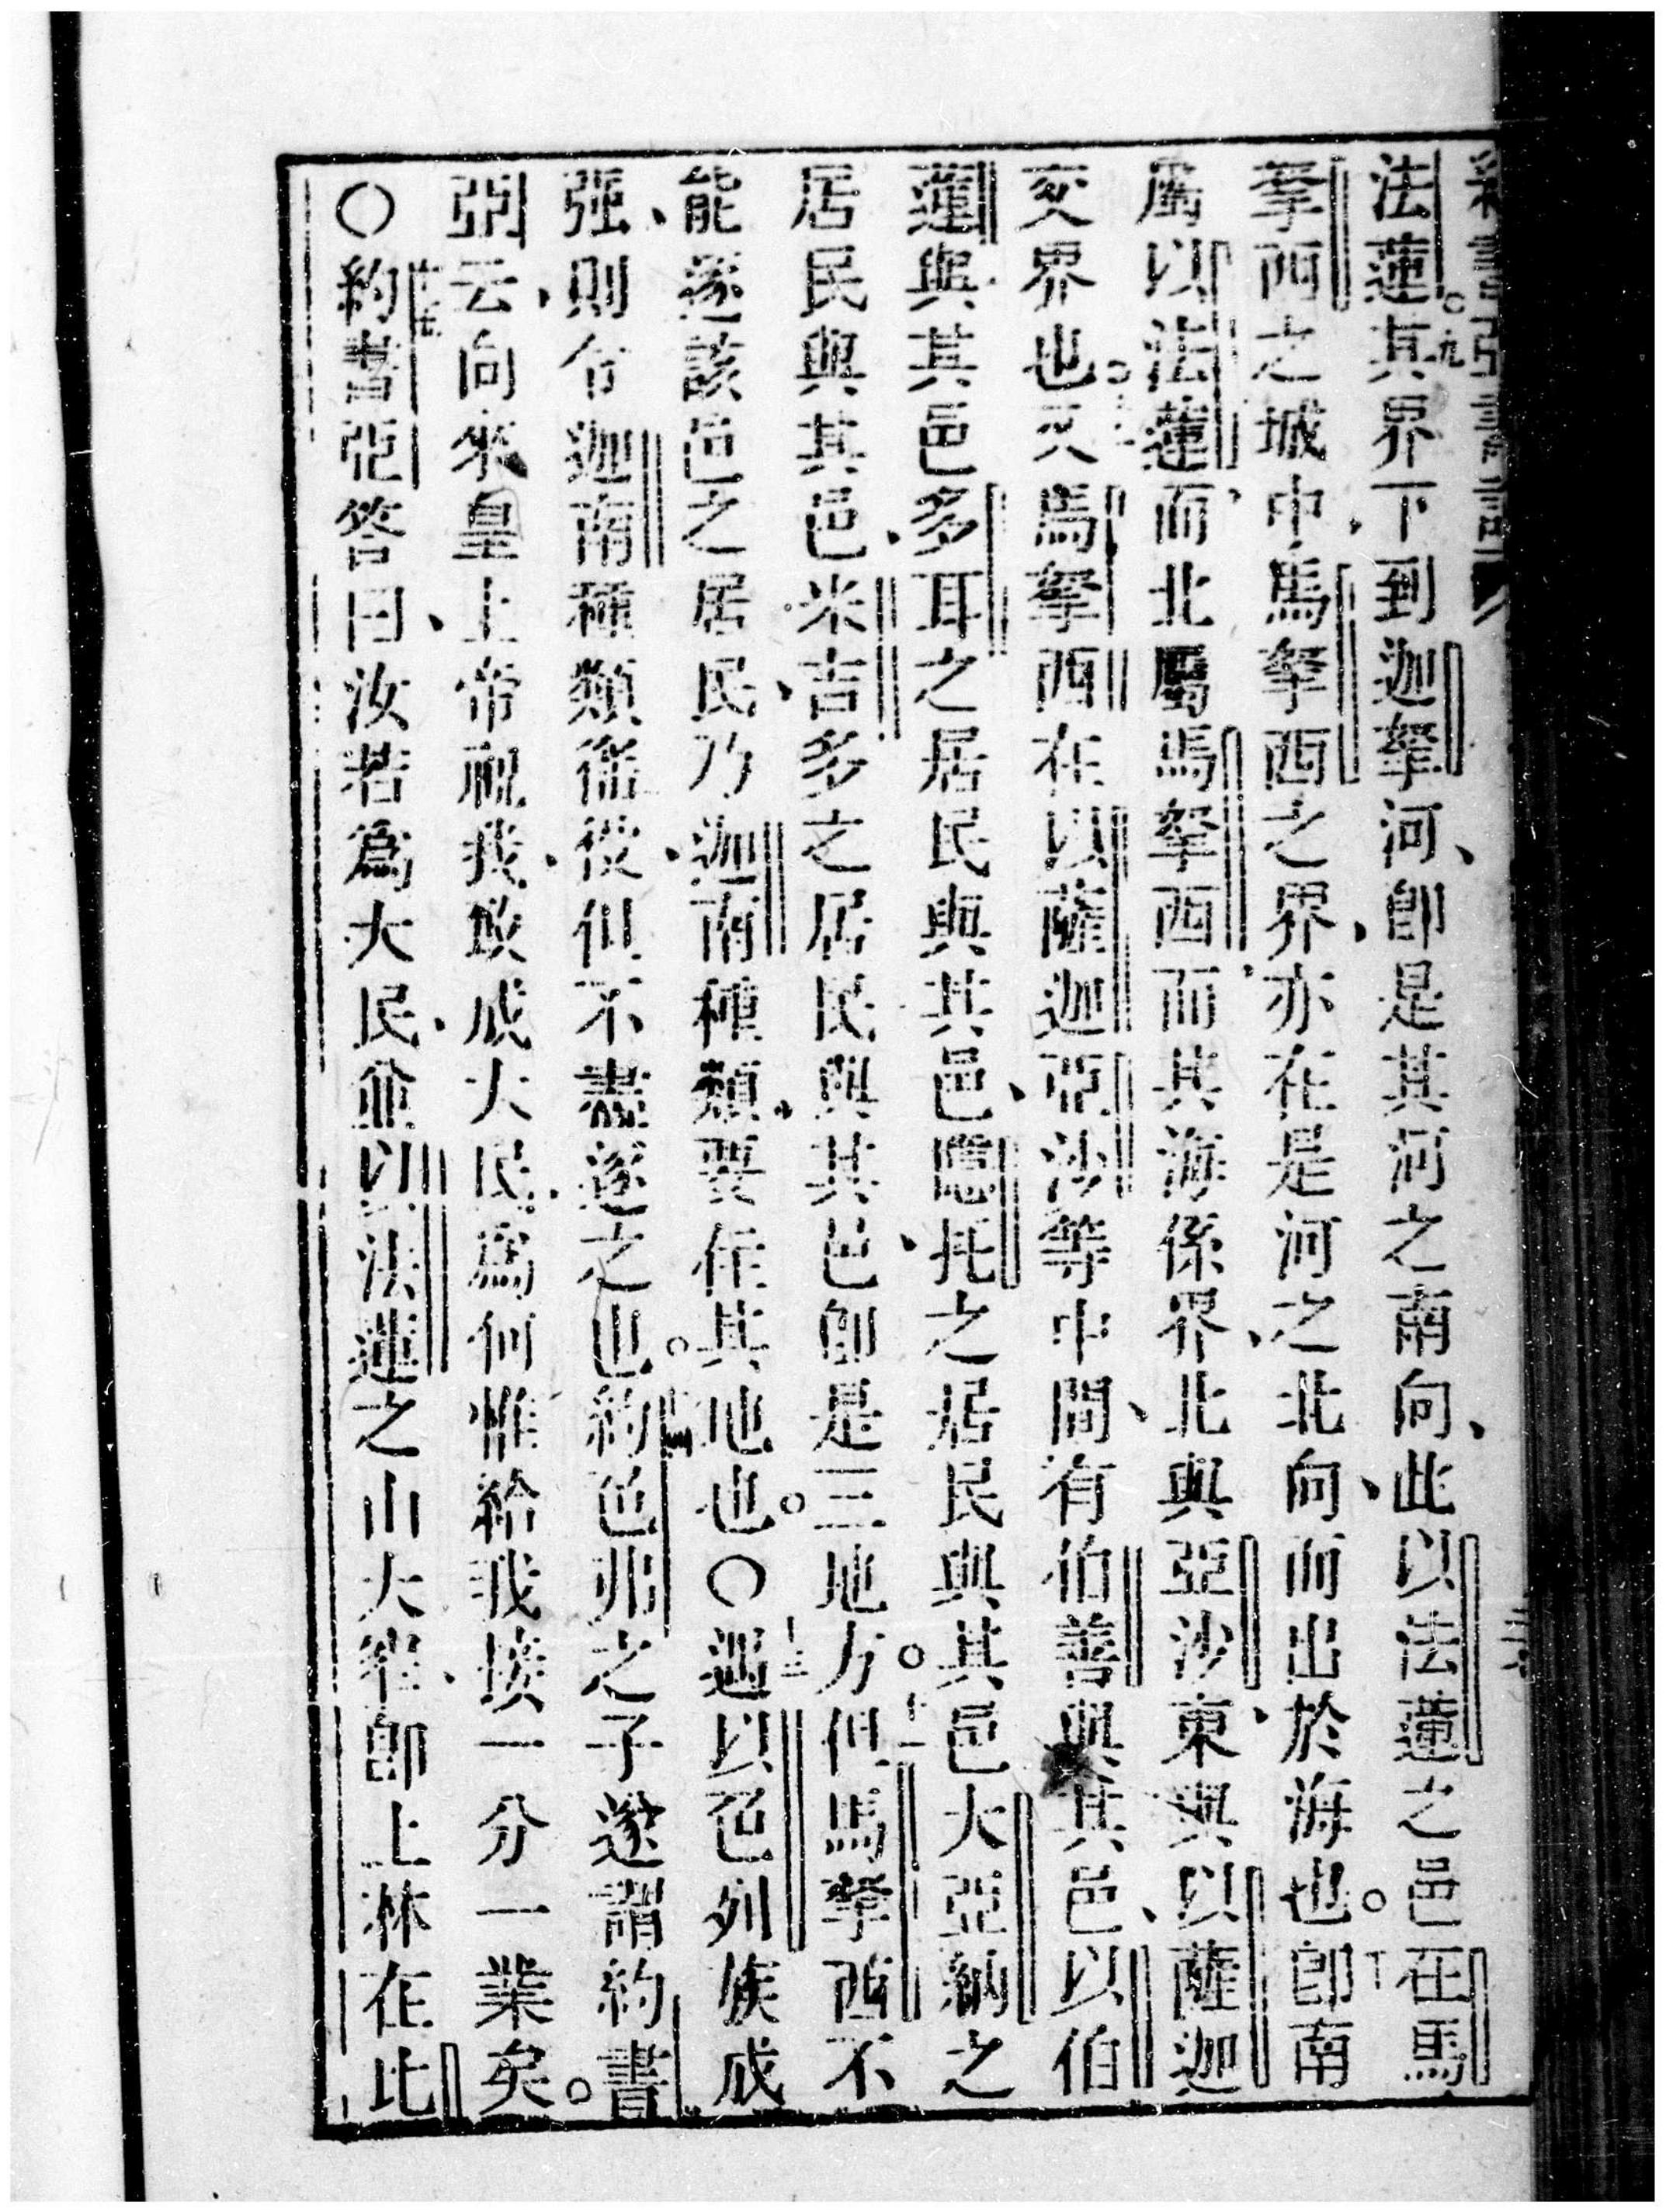 法蓮。九其界下到迦拏河、卽是其河之南向、此以法蓮之邑在馬
拏西之城中、馬拏西之界、亦在是河之北向、而出於海也。十卽南
屬以法蓮、而北屬馬拏西、而其海係界、北與亞沙、東與以薩迦
交界也。又馬拏西在以薩迦亞沙等中間、有伯善與其邑、以伯
蓮與其邑、多耳之居民與其邑、隱托之居民與其邑、大亞納之
居民與其邑、米吉多之居民與其邑、卽是三地方。十二但馬拏西不
能逐該邑之居民、乃迦南種類、要住其地也。〇十三遇以色列族成
强、則令迦南種類徭役、但不盡逐之也。十四約色弗之子遂謂約書
亞云、向來皇上帝祝我、致成大民、爲何惟給我接一分一業矣。
〇十五約書亞答曰、汝若爲大民、並以法蓮之山大窄、卽上林在比